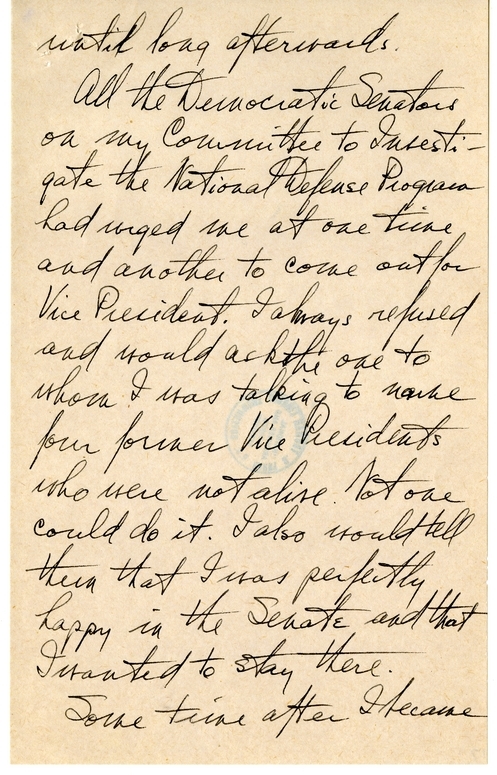 until long afterwards.
All the Democratic Senators
on my Committee to Investi-
gate the National Defense Program
had urged me at one time
and another to come out for
Vice President. I always refused
and would ask the one to
whom I was talking to name
four former Vice Presidents
who were not alive. Not one
could do it. I also would tell
them that I was perfectly
happy in the Senate and that
I wanted to stay there.
Some time after I became